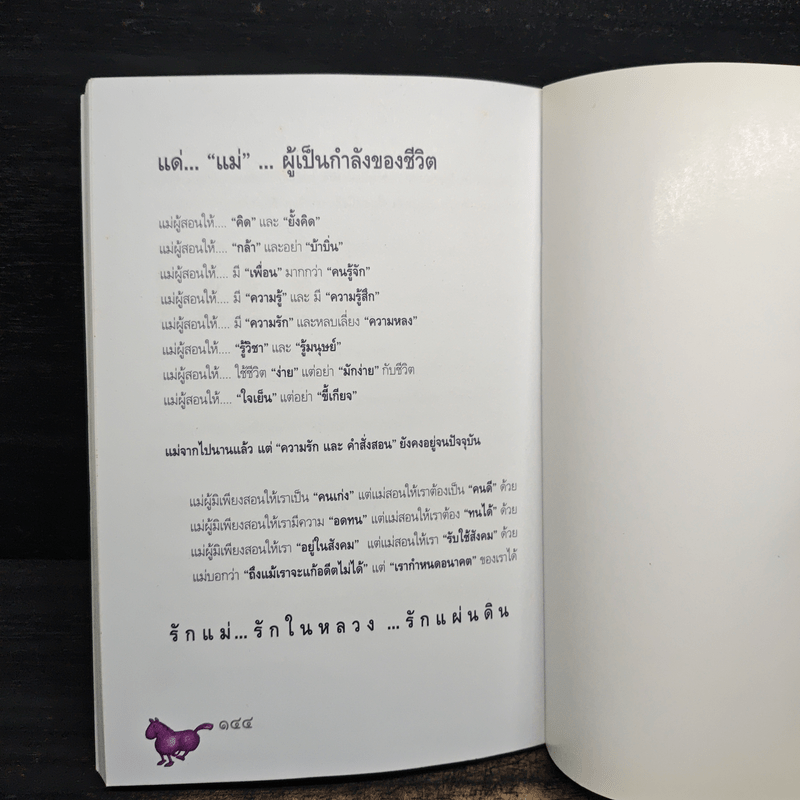 แด่... “แม่” ... ผู้เป็นกำลังของชีวิต
แม่ผู้สอนให้.... “คิด” และ “ยั้งคิด”
แม่ผู้สอนให้.... “กล้า” และอย่า “บ้าบิ่น”
แม่ผู้สอนให้.... มี “เพื่อน” มากกว่า “คนรู้จัก”
แม่ผู้สอนให้.... มี “ความรู้” และ มี “ความรู้สึก”
แม่ผู้สอนให้.... มี “ความรัก” และหลบเลี่ยง “ความหลง”
แม่ผู้สอนให้.... “รู้วิชา” และ “รู้มนุษย์”
แม่ผู้สอนให้.... ใช้ชีวิต “ง่าย” แต่อย่า “มักง่าย” กับชีวิต
แม่ผู้สอนให้.... “ใจเย็น” แต่อย่า “ขี้เกียจ”
แม่จากไปนานแล้ว แต่ “ความรัก และ คำสั่งสอน” ยังคงอยู่จนปัจจุบัน
แม่ผู้มิเพียงสอนให้เราเป็น “คนเก่ง” แต่แม่สอนให้เราต้องเป็น “คนดี” ด้วย
แม่ผู้มิเพียงสอนให้เรามีความ “อดทน” แต่แม่สอนให้เราต้อง “ทนได้” ด้วย
แม่ผู้มิเพียงสอนให้เรา “อยู่ในสังคม” แต่แม่สอนให้เรา “รับใช้สังคม” ด้วย
แม่บอกว่า “ถึงแม้เราจะแก้อดีตไม่ได้” แต่ “เรากำหนดอนาคต” ของเราได้
รักแม่...รักในหลวง ...รักแผ่นดิน
๑๔๔